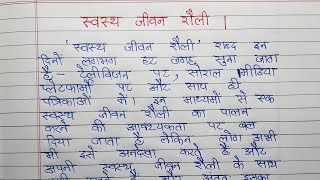 स्वस्थ जीवन शैली।
'स्वस्थ जीवन शैली' शब्द इन
दिनों लगभग हर जगह सुना जाता
है:- टेलीविजन पर, सोशल मीडिया
प्लेटफार्मों पर और साथ ही
पत्रिकाओं में। इन माध्यमों से एक
स्वस्थ जीवन शैली का पालन
करने की आवश्यकता पर बल
दिया जाता है लेकिन लोग अभी
भी इसे अनदेखा करते हैं और
अपनी स्वस्थ जीवन शैली के साथ